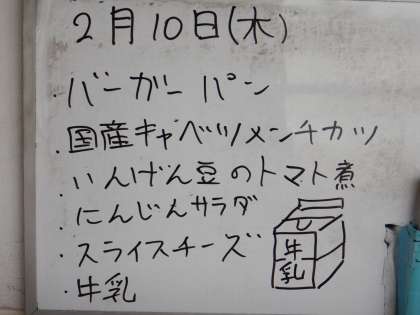 2月10日(木)
・バーガーパン
・国産キャベツメンチカツ
・いんげん豆のトマト煮
・にんじんサラダ
・スライスチーズ
・牛乳
牛
乳